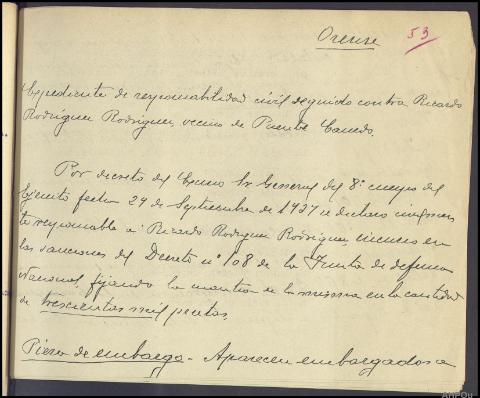 Orense 53
Expediente de responsabilidad civil seguido contra Ricardo
Rodriguez Rodriguez, vecino de Puente Canedo.
Por decreto del Excmo Sr General del 8º cuerpo del
Ejército fecha 29 de Septiembre de 1937 se declaro
responsable a Ricardo Rodriguez Rodriguez, incurso en
las sanciones del Decreto nº 108 de la Junta de defensa
Nacional, fijando la cuantia de la misma en la cantidad
de trescientas mil pesetas.
Pieza de embargo - Aparecen embargados a
AHPOu